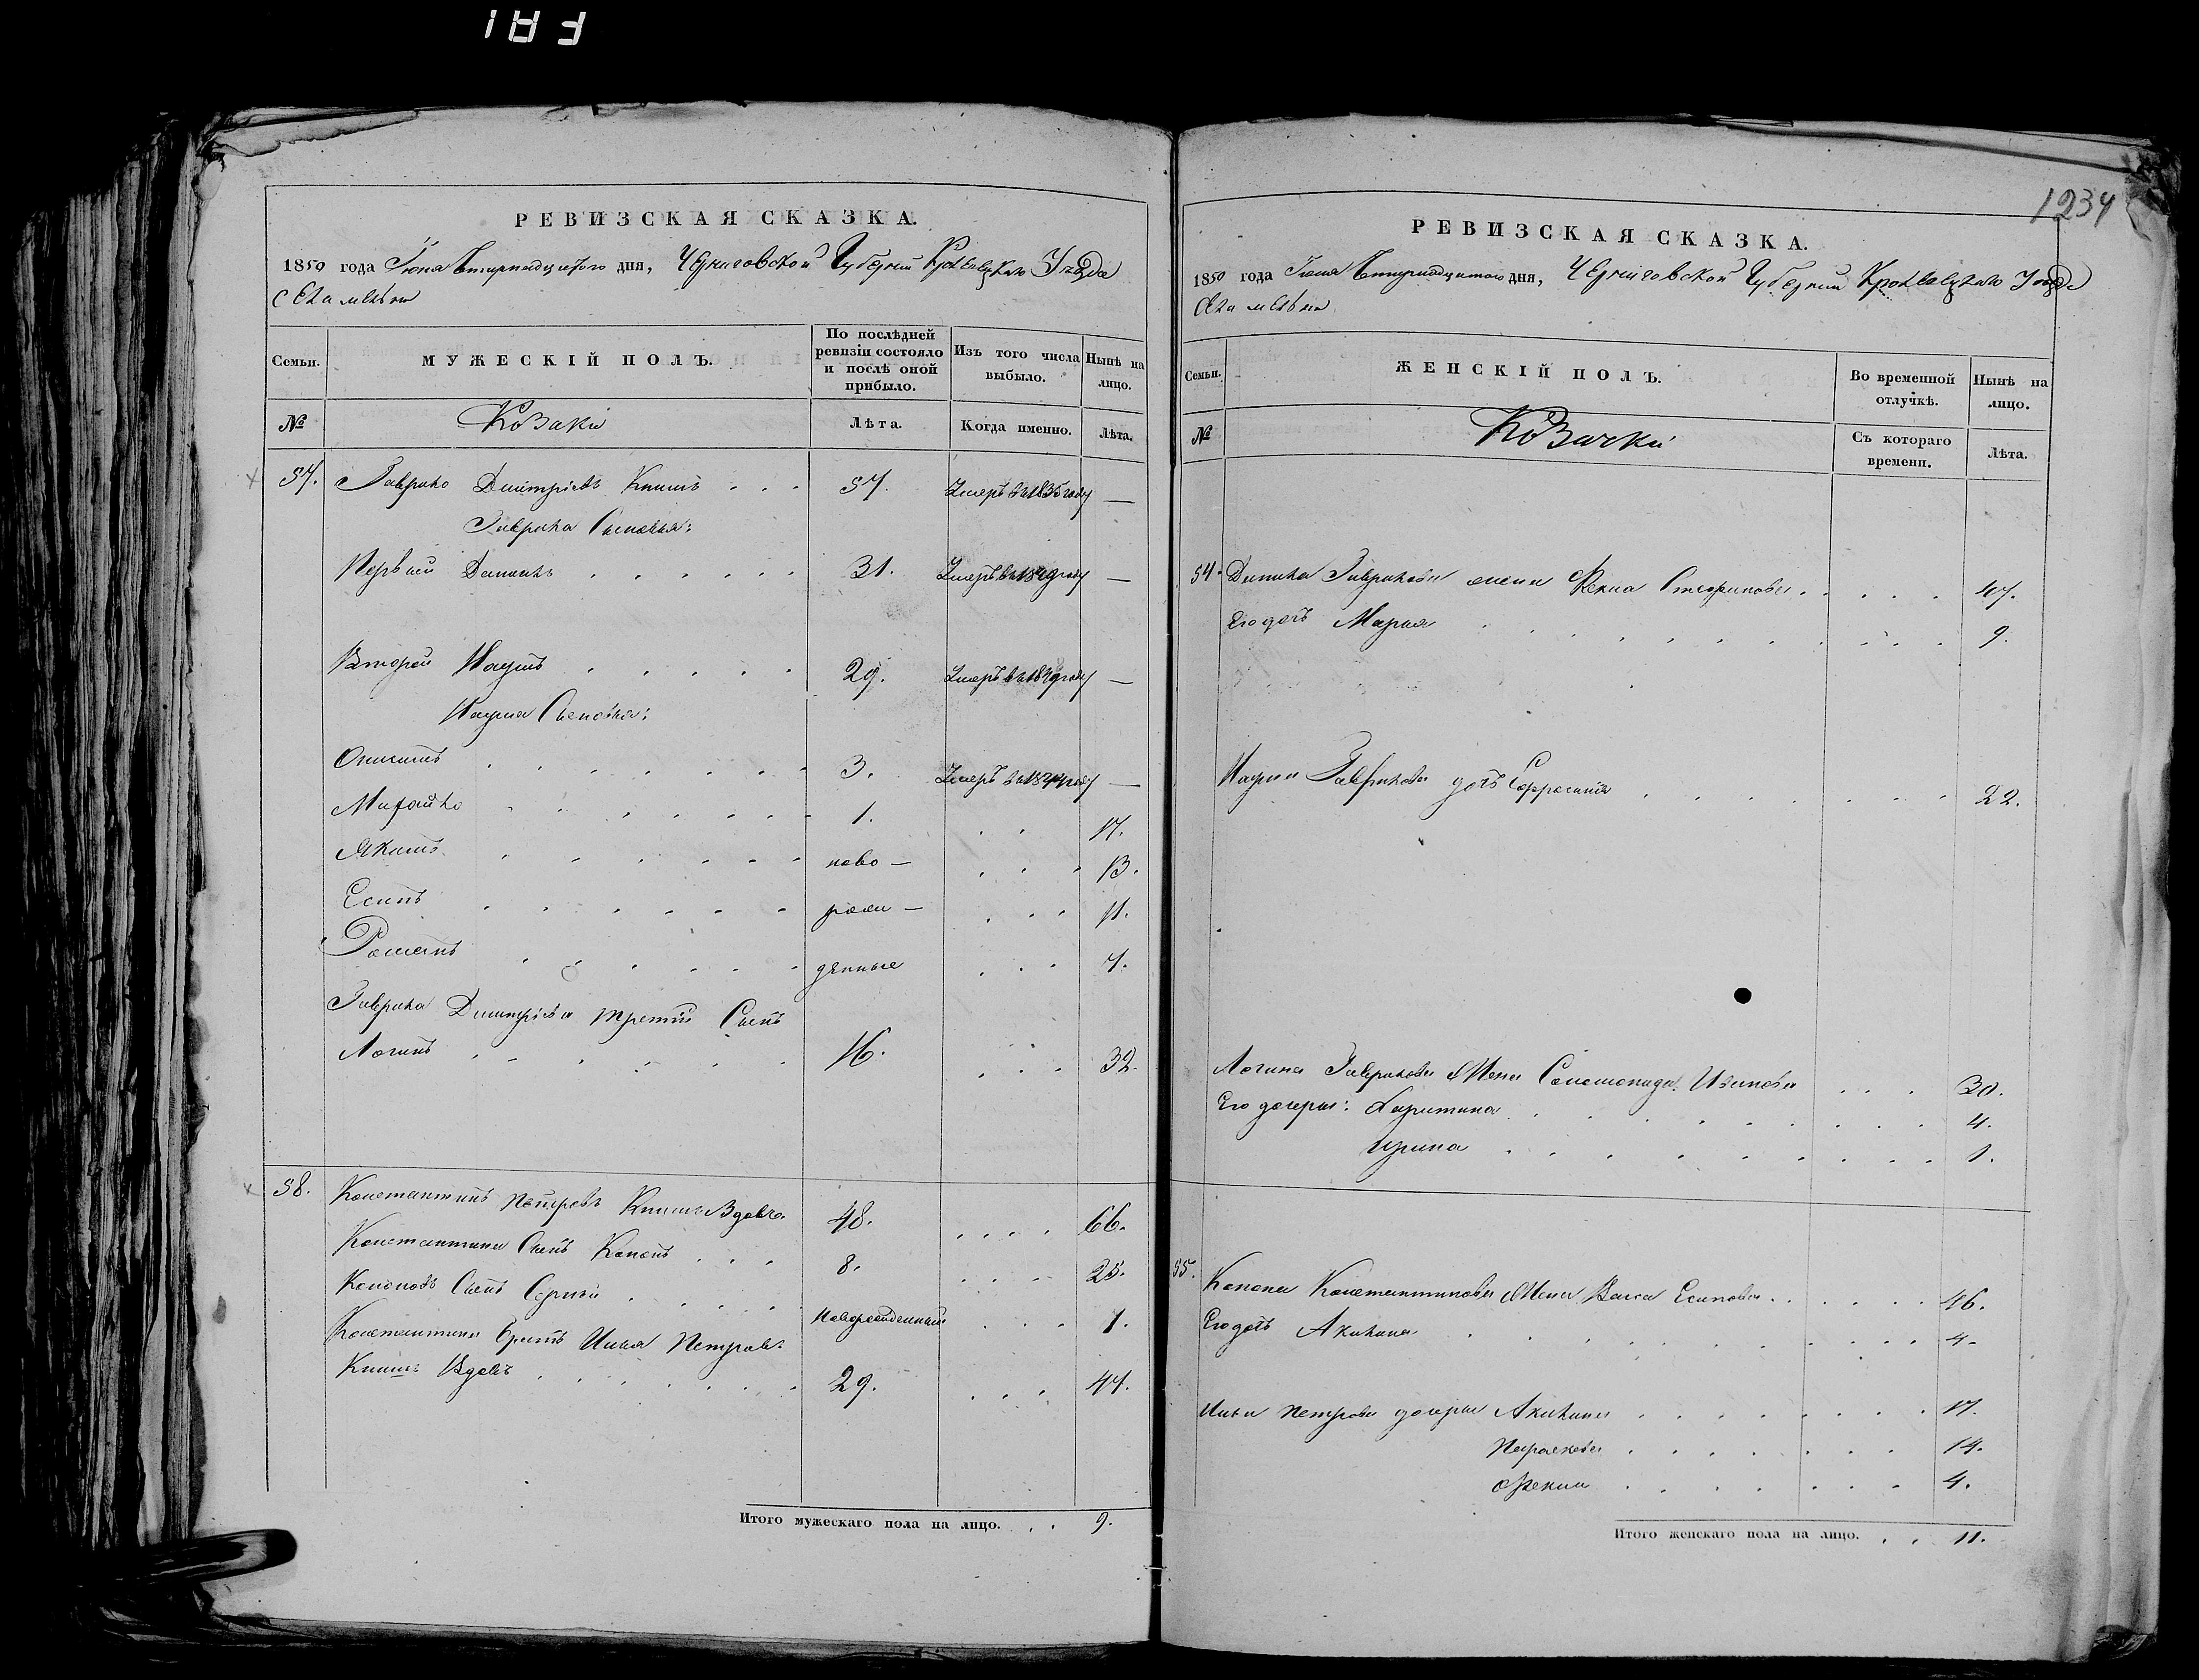 РЕВИЗСКАЯ СКАЗКА.
1850 года Іюня дня, Черниговской Губерніи Кролевецкаго Уѣзда
Села
Семьи. МУЖЕСКІЙ ПОЛЪ. По послѣдней ревизіи состояло и послѣ оной прибыло. Изъ того числа выбыло. Нынѣ на лицо.
№ Козаки Лѣта. Когда именно. Лѣта.
57. Гаврило Дмитріевъ Книшъ 57. Умеръ въ 1835 году —
Гаврила Сыновья:
Первый Демьянъ 31. Умеръ въ 1849 году —
Второй Наумъ 29. Умеръ въ 1849 году —
Наума Сыновья:
3. Умеръ въ 1844 году —
Михайло 1. 17.
Якимъ ново — 13.
Есипъ рож — 11.
Романъ денные 7.
Гаврила Дмитріева третій Сынъ
Логинъ 16. 32.
58. Константинъ Петровъ Книшъ Вдовъ 48. 66.
Константина Сынъ Кононъ 8. 25.
Кононовъ Сынъ Сергѣй Новорожденный 1.
Константина братъ Илья Петровъ
Книшъ Вдовъ 29. 47.
Итого мужескаго пола на лицо. 9.
1234
РЕВИЗСКАЯ СКАЗКА.
1850 года Іюня дня, Черниговской Губерніи Кролевецкаго Уѣзда
Села
Семьи. ЖЕНСКІЙ ПОЛЪ. Во временной отлучкѣ. Нынѣ на лицо.
№ Козачки Съ котораго времени. Лѣта.
54. Гаврилова жена Фекла Стефанова 47.
Его дочь Марья 9.
Наума Гаврилова дочь Ефросинія 22.
Логина Гаврилова Жена Соломонида Иванова 30.
Его дочери: Харитина 4.
Ирина 1.
55. Конона Константинова Жена Васса Есипова 46.
Его дочь Акилина 4.
Ильи Петрова дочери Акилина 17.
Парасковья 14.
Фекла 4.
Итого женскаго пола на лицо. 11.